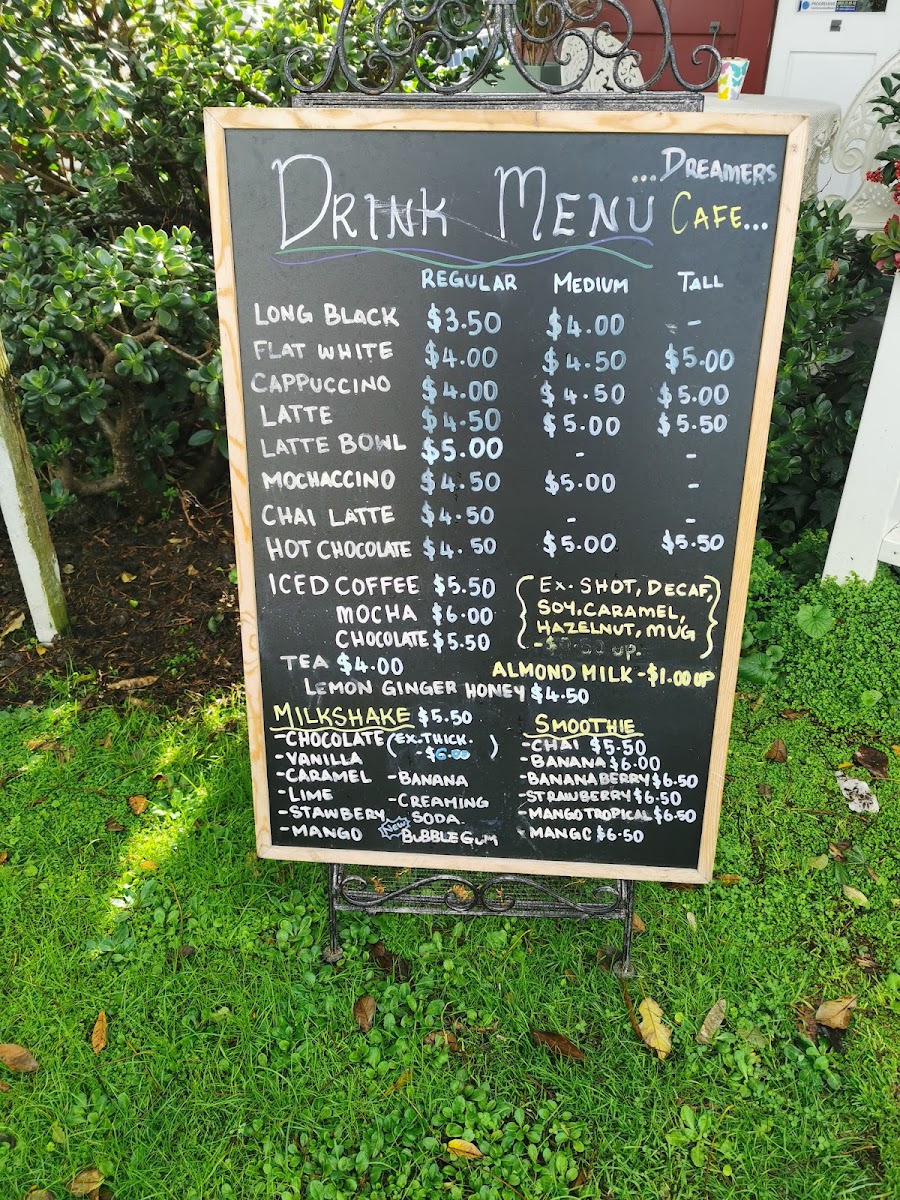 DRINK MENU
...DREAMERS
CAFE...
REGULAR MEDIUM TALL
LONG BLACK $3.50 $4.00 -
FLAT WHITE $4.00 $4.50 $5.00
CAPPUCCINO $4.00 $4.50 $5.00
LATTE $4.50 $5.00 $5.50
LATTE BOWL $5.00 - -
MOCHACCINO $4.50 $5.00 -
CHAI LATTE $4.50 - -
HOT CHOCOLATE $4.50 $5.00 $5.50
ICED COFFEE $5.50
MOCHA $6.00
CHOCOLATE $5.50
(EX. SHOT, DECAF,
SOY, CARAMEL,
HAZELNUT, MUG
UP.)
TEA $4.00
ALMOND MILK -$1.00 UP
LEMON GINGER HONEY $4.50
MILKSHAKE $5.50
-CHOCOLATE (EX.THICK.
-$6.00 )
-VANILLA
-CARAMEL
-LIME
-STAWBERY
-MANGO
-BANANA
-CREAMING
SODA.
New BUBBLEGUM
SMOOTHIE
-CHAI $5.50
-BANANA $6.00
-BANANA BERRY $6.50
-STRAWBERRY $6.50
-MANGO TROPICAL $6.50
-MANGO $6.50